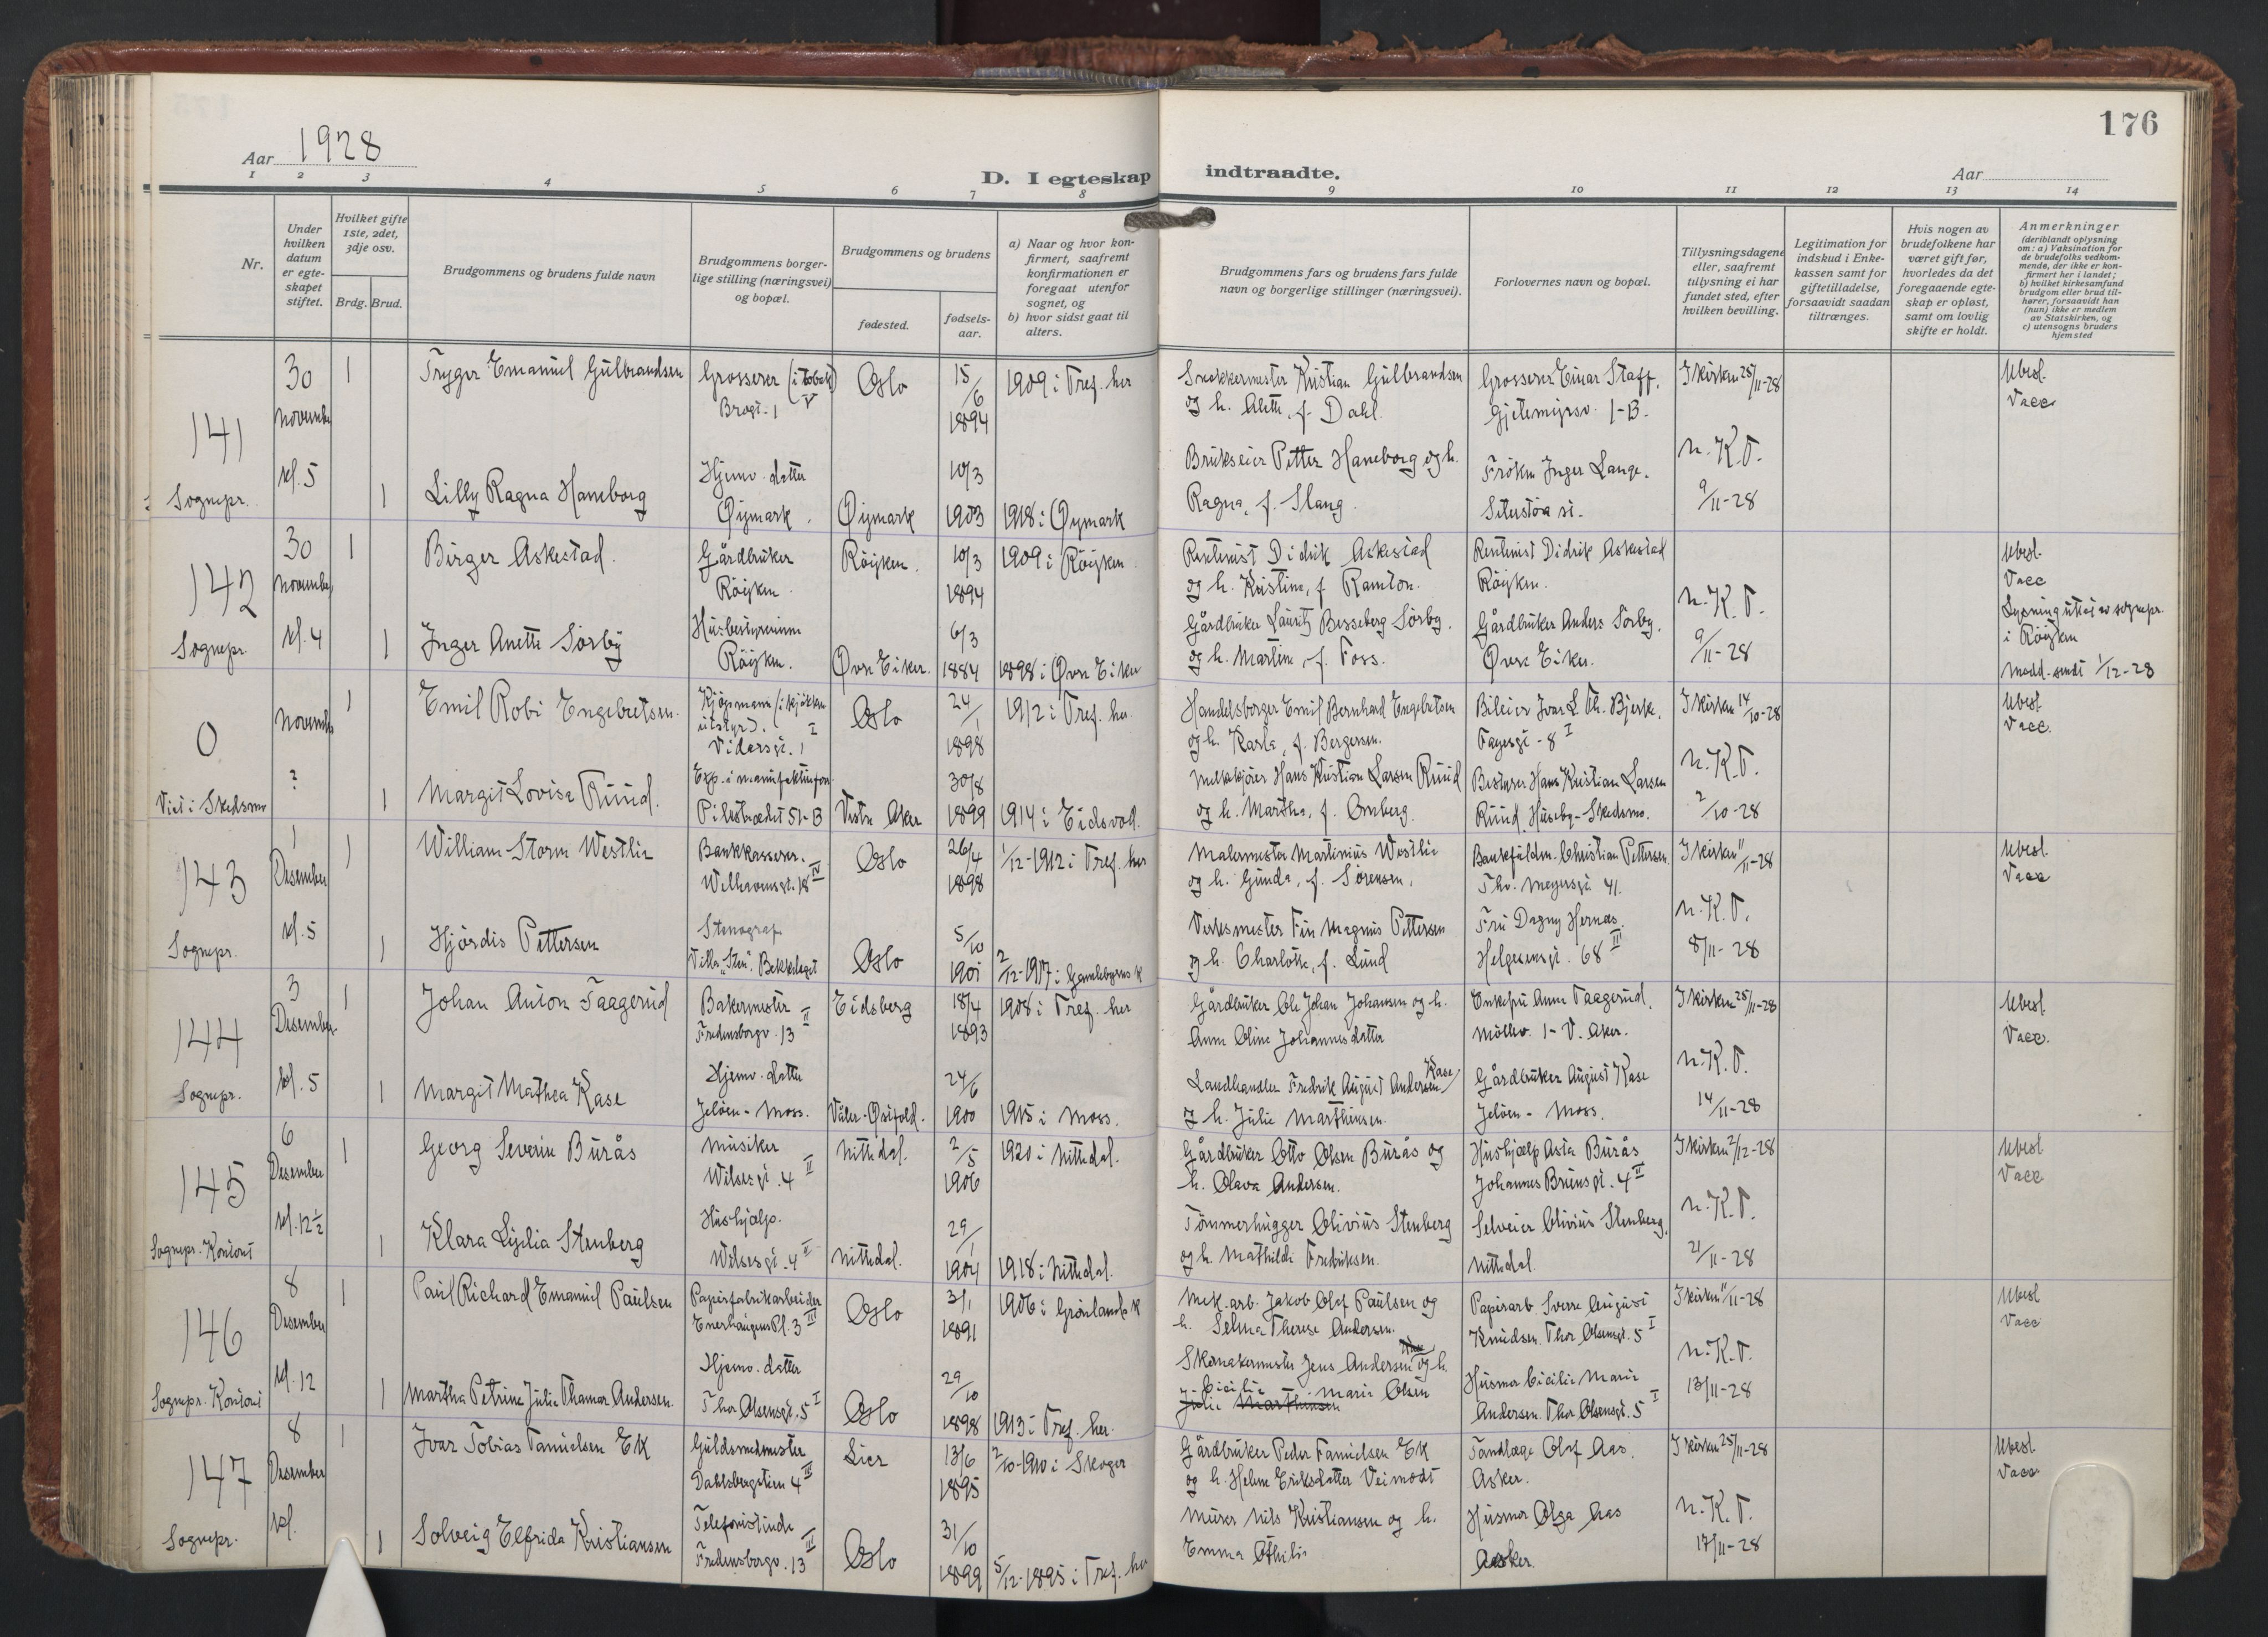 176
Aar 1928
D. I egteskap indtraadte.
Aar
1 2 3 4 5 6 7 8 9 10 11 12 13 14
Nr.
Under hvilken datum er egteskapet stiftet.
Hvilket gifte 1ste, 2det, 3dje osv.
Brdg. Brud.
Brudgommens og brudens fulde navn
Brudgommens borgerlige stilling (næringsvei) og bopæl.
Brudgommens og brudens
fødested.
fødselsaar.
a) Naar og hvor konfirmert, saafremt konfirmationen er foregaat utenfor sognet, og
b) hvor sidst gaat til alters.
Brudgommens fars og brudens fars fulde navn og borgerlige stillinger (næringsvei).
Forlovernes navn og bopæl.
Tillysningsdagene eller, saafremt tillysning ei har fundet sted, efter hvilken bevilling.
Legitimation for indskud i Enkekassen samt for giftetilladelse, forsaavidt saadan tiltrænges.
Hvis nogen av brudefolkene har været gift før, hvorledes da det foregaaende egteskap er opløst, samt om lovlig skifte er holdt.
Anmerkninger
(deriblandt oplysning om: a) Vaksination for de brudefolks vedkommende, der ikke er konfirmert her i landet; b) hvilket kirkesamfund brudgom eller brud tilhører, forsaavidt han (hun) ikke er medlem av Statskirken, og c) utensogns bruders hjemsted
141
Sognepr.
30 November kl. 5
1 Trygve Emanuel Gulbrandsen
Grosserer (i tobak) Brogt. 1 V
Oslo
15/6 1894
1909 i Tref. her
Snekkermester Kristian Gulbrandsen
og h. Alette, f. Dahl.
Grosserer Einar Staff,
Gjetemyrsv. 1-B.
I kirken 25/11-28
Ubesl.
Vacc.
1 Lilly Ragna Haneborg
Hjemv. datter
Øymark
Øymark
10/3 1903
1918 i Øymark
Brukseier Petter Haneborg og h.
Ragna, f. Slang.
Frøken Inger Lange.
Seterstøa st.
n. K. T.
9/11-28
142
Sognepr.
30 November kl. 4
1 Birger Askestad.
Gårdbruker
Røyken
Røyken.
10/3 1894
1909 i Røyken
Rentenist Didrik Askestad
og h. Kristine, f. Ramton.
Rentenist Didrik Askestad
Røyken.
Ubesl.
Vacc
Lysning uttat av sognepr.
i Røyken
Medd. sendt 1/12-28
1 Inger Anette Sørby
Husbestyrerinne
Røyken.
Øvre Eiker.
6/3 1884
1898 i Øvre Eiker
Gårdbruker Lauritz Besseberg Sørby.
og h. Martine, f. Foss.
Gårdbruker Anders Sørby.
Øvre Eiker.
n. K. T.
9/11-28
0
Viet i Skedsmo
November ?
1 Emil Robi Engebretsen.
Kjøpmann (i kjøkken utstyr). I
Vidarsgt. 1
Oslo
24/1 1898
1912 i Tref. her
Handelsborger Emil Bernhard Engebretsen
og h. Karla, f. Bergersen.
Bileier Ivar L. Th. Bjerke.
Fayesgt - 8 I
I kirken 14/10-28
Ubesl.
Vacc.
1 Margit Lovise Ruud.
Exp. i manufakturforr.
Pilestrædet 51-B
Vestre Aker
30/8 1899
1914 i Eidsvol.
Melkekjører Hans Kristian Larsen Ruud
og h. Martha, f. Omberg.
Bestyrer Hans Kristian Larsen
Ruud. Huseby - Skedsmo.
n. K. T.
2/10-28
143
Sognepr.
1 Desember kl. 5
1 William Storm Westlie
Bankkasserer.
Welhavensgt. 18 IV
Oslo
26/4 1898
1/12-1912 i Tref. her
Malermester Martinius Westlie
og h. Gunda, f. Sørensen.
Bankfuldm. Christian Pettersen.
Thv. Meyersgt. 41.
I kirken 11/11-28
Ubesl.
Vacc
1 Hjørdis Pettersen
Stenograf
Villa "Sten". Bekkelaget
Oslo
5/10 1901
2/12-1917 i Gamlebyens k
Verksmester Fin Magnus Pettersen
og h. Charlotte, f. Lund
Fru Dagny Hernæs.
Helgesensgt. 68 III
n. K. T.
8/11-28
144
Sognepr.
3 Desember kl. 5
1 Johan Anton Taagerud
Bakermester II
Fredensborgv. 13
Eidsberg
18/4 1893
1908 i Tref. her
Gårdbruker Ole Johan Johansen og h.
Anne Oline Johannesdatter
Enkefru Anna Taagerud.
Møllev. 1-V. Aker.
I kirken 25/11-28
Ubesl.
Vacc.
1 Margit Mathea Kase
Hjemv. datter
Jeløen - Moss.
Våler - Østfold.
24/6 1900
1915 i Moss.
Landhandler Fredrik August Andersen Kase
og h. Julie Marthinsen.
Gårdbruker August Kase
Jeløen - Moss.
n. K. T.
14/11-28
145
Sognepr. Kontort
6 Desember kl. 12 1/2
1 Georg Severin Burås
Musiker
Wilsesgt. 4 II
Nittedal.
2/5 1906
1920 i Nittedal.
Gårdbruker Otto Olsen Burås og
h. Olava Andersen.
Hushjælp Asta Burås
Johannes Brunsgt. 4 II
I kirken 2/12-28
Ubesl
Vacc
1 Klara Lydia Stenberg
Hushjælp.
Wilsesgt. 4 II
Nittedal.
29/1 1904
1918 i Nittedal.
Tømmerhugger Olivius Stenberg
og h. Mathilde Fredriksen.
Selveier Olivius Stenberg.
Nittedal.
n. K. T.
21/11-28
146
Sognepr. Kontort
8 Desember kl. 12
1 Paul Richard Emanuel Paulsen
Papirfabrikarbeider
Enerhaugens Pl. 3 III
Oslo
3/1 1891
1906 i Grønlands k
Mek. arb. Jakob Olaf Paulsen og
h. Selma Therese Andersen.
Papirarb. Sverre August
Knudsen. Thor Olsensgt. 5 I
I kirken 11/11-28
Ubesl
Vacc
1 Martha Petrine Julie Thamar Andersen.
Hjemv. datter
Thor Olsensgt. 5 I
Oslo
29/10 1898
1913 i Tref. her.
Skomakermester Jens Andersen og h.
Cicilie Marie Olsen
Julie Marthinsen
Husmor Cicilie Marie
Andersen. Thor Olsensgt. 5 I
n. K. T.
13/11-28
147
Sognepr.
8 Desember kl.
1 Ivar Tobias Tanielsen Ek
Guldsmedmester
Dahlsbergstien 4 III
Lier
13/6 1895
2/10-1910 i Skoger
Gårdbruker Peder Tanielsen Ek
og h. Helene Eriksdatter Veimodt
Tandlæge Olaf Aas.
Asker.
I kirken 25/11-28
Ubesl.
Vacc
1 Solveig Elfrida Kristiansen
Telefonistinde
Fredensborgv. 13 III
Oslo
31/10 1899
5/12-1895 i Tref. her
Murer Nils Kristiansen og h.
Emma Othilie
Husmor Olga Aas
Asker.
n. K. T.
17/11-28